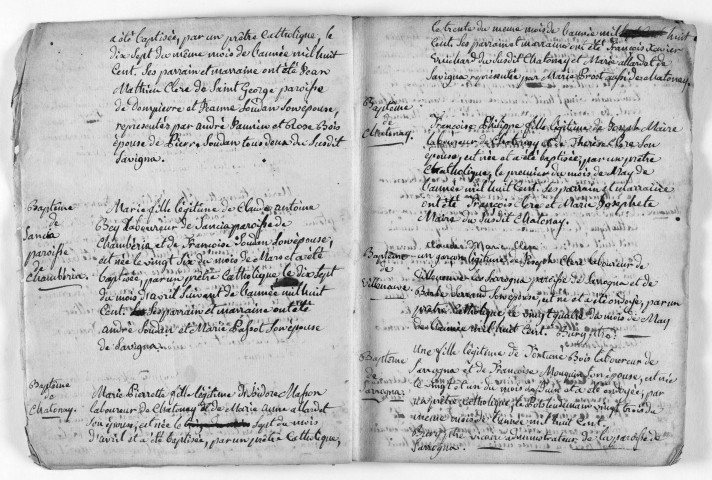 a été baptisée, par un prêtre Catholique, le
dix Sept du même mois de L'année mil huit
Cent. Ses parrain et marraine ont été Jean
Mathieu Clerc de Saint George paroisse
de Dompierre et Jeanne Soudan Son épouse,
représentés par andré et Rose Bois
épouse de Pierre Soudan tous deux du Susdit
Savigna.
Baptême
de
Sancia
paroisse
de
Chambéria.
Marie fille légitime de Claude antoine
Bey Laboureur de Sancia paroisse de
Chambéria et de Françoise Soudan Son épouse,
est née le vingt Six du mois de Mars et a été
baptisée, par un prêtre Catholique le dix Sept
du mois d'avril Suivant de L'année mil huit
Cent. Ses parrain et marraine ont été
andré Soudan et Marie Son épouse
de Savigna.
Baptême
de
Chatonay.
Marie Pierrette fille légitime d'isidore
Laboureur de Chatonay et de Marie anne allardet
Son épouse, est née le Sept du mois
d'avril et a été baptisée, par un prêtre Catholique,
le trente du même mois de L'année mil huit
Cent. Ses parrain et marraine ont été François Xavier
du Susdit Chatonay et Marie allardet de
Savigna représentée par Marie Brost aussi de Chatonay.
Baptême
de
Chatonay.
Françoise Philippe fille légitime de Joseph Maire
Laboureur de Chatonay et de Thérèse Son
épouse, est née et a été baptisée, par un prêtre
Catholique, le premier du mois de May de
L'année mil huit Cent. Ses parrain et marraine
ont été François et Marie Josephete
Maire du Susdit Chatonay.
Baptême
de
Villeneuve.
Claude Marie Clerc
un garçon légitime de Joseph Clerc Laboureur de
Villeneuve Les Sarrogna paroisse de Sarrogna et de
Son épouse, est né et a été ondoyé, par un
prêtre Catholique, le vingt quatre du mois de May
de L'année mil huit Cent.
Baptême
de
Sarrogna.
Une fille légitime de Fortuné Bois Laboureur de
Sarrogna et de Françoise Son épouse, est née
le vingt et un du mois de Juin et a été ondoyée, par
un prêtre Catholique, le vingt trois du
même mois de L'année mil huit Cent.
prêtre vicaire administrateur de la paroisse de
Sarrogna.